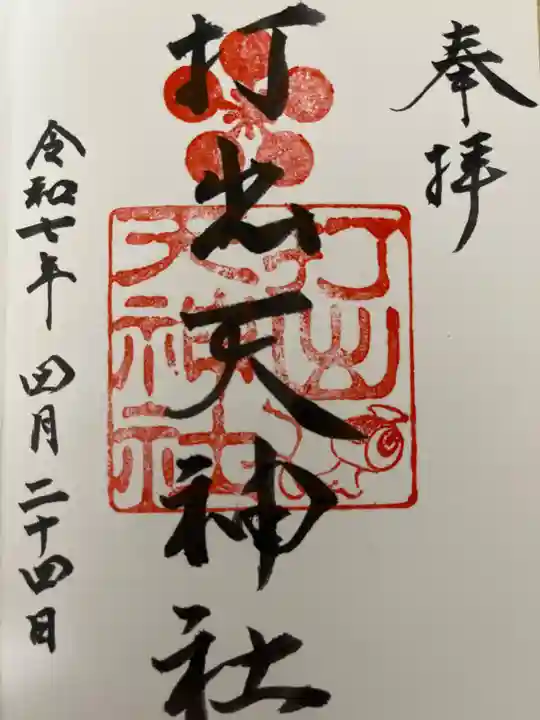 奉拝
打出天神社
打出
天神社
令和七年 四月二十四日